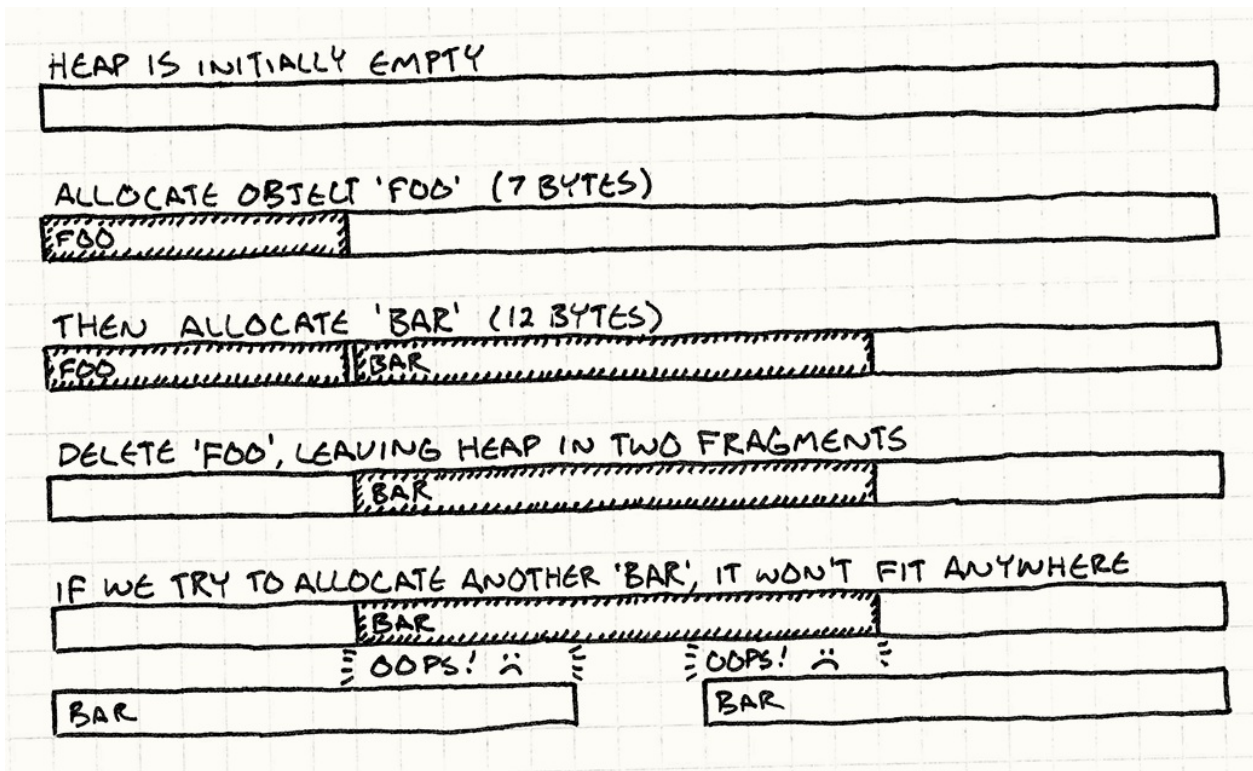 HEAP IS INITIALLY EMPTY
ALLOCATE OBJECT 'FOO' (7 BYTES)
FOO
THEN ALLOCATE 'BAR' (12 BYTES)
FOO BAR
DELETE 'FOO', LEAVING HEAP IN TWO FRAGMENTS
BAR
IF WE TRY TO ALLOCATE ANOTHER 'BAR', IT WON'T FIT ANYWHERE
BAR
OOPS! OOPS!
BAR BAR